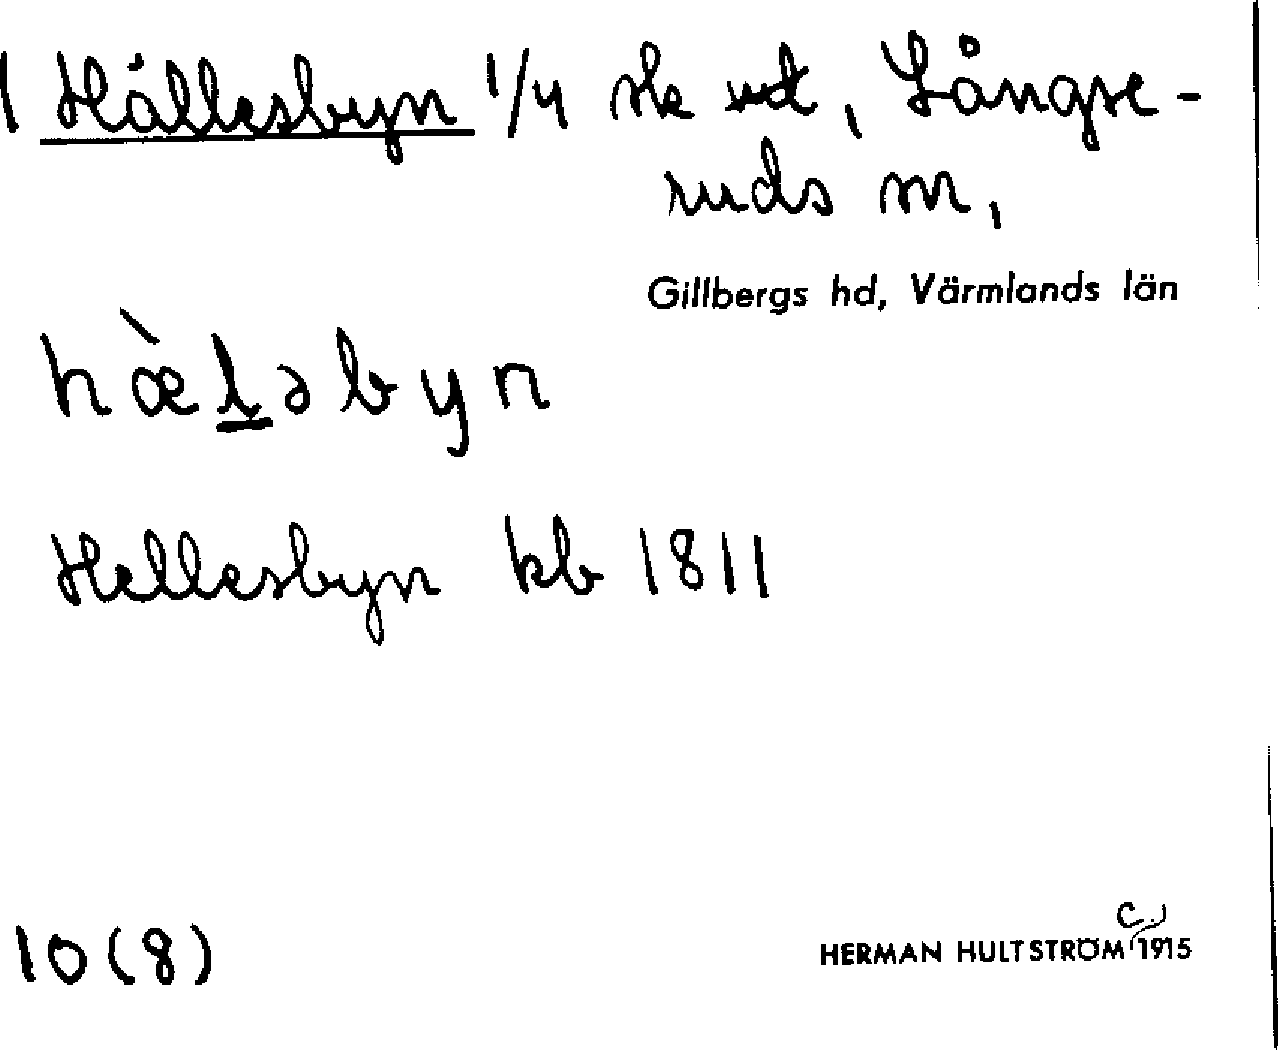 1 Hällesbyn 1/4 sk st, Långse-
ruds sn,
Gillbergs hd, Värmlands län
hæ̀ḷəbyn
Hellesbyn kb 1811
10(8)
c.
HERMAN HULTSTRÖM 1915